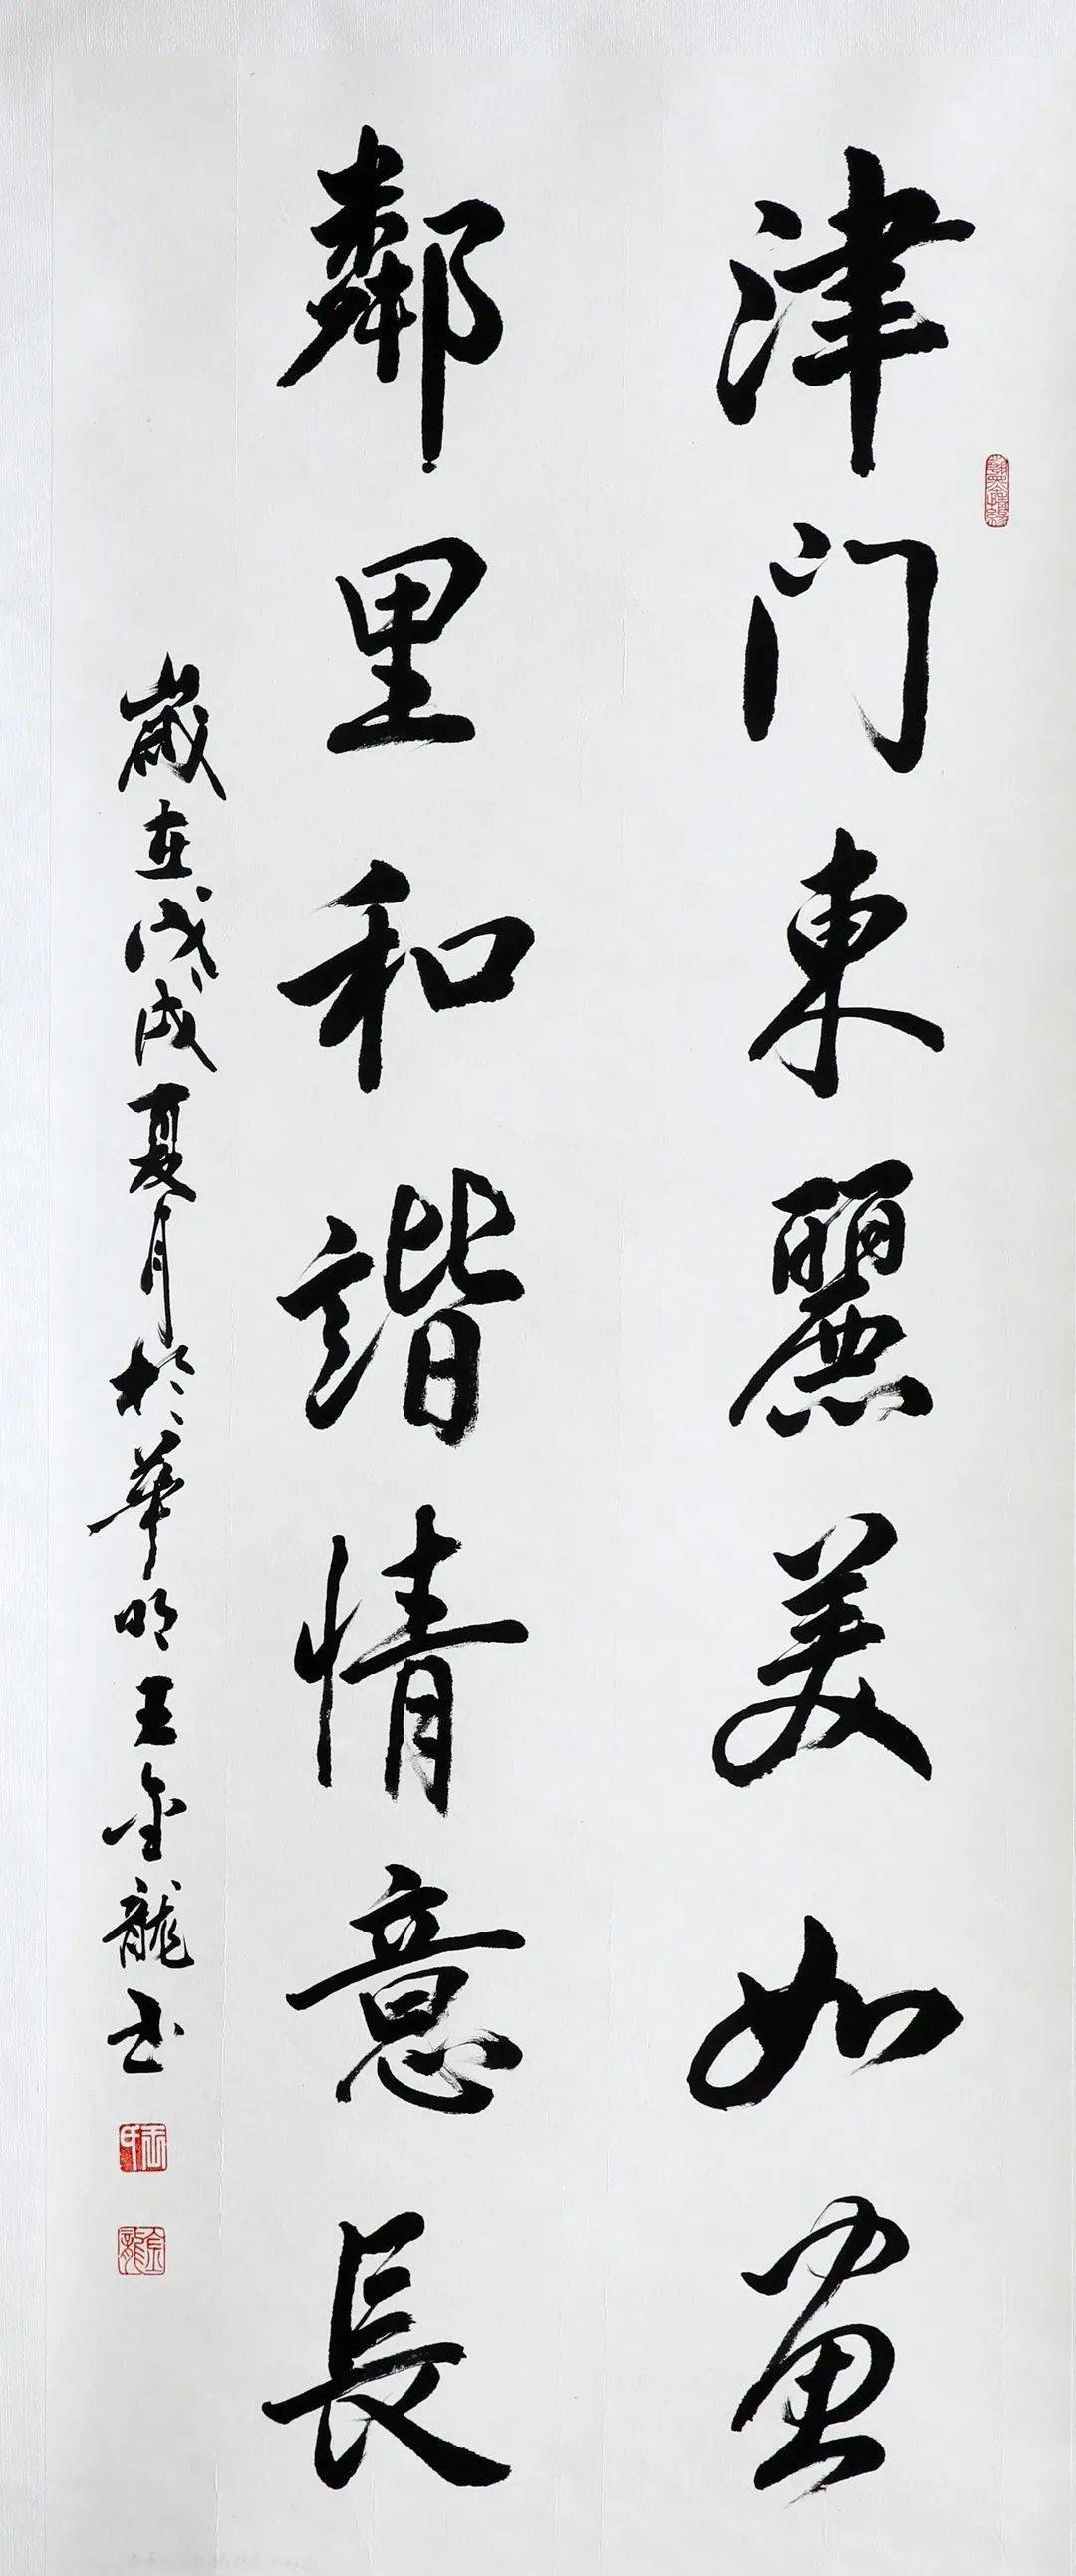 津门東麗美如畫
鄰里和諧情意長
歲在戊戌夏月於華明王金龍书
王氏
金龍